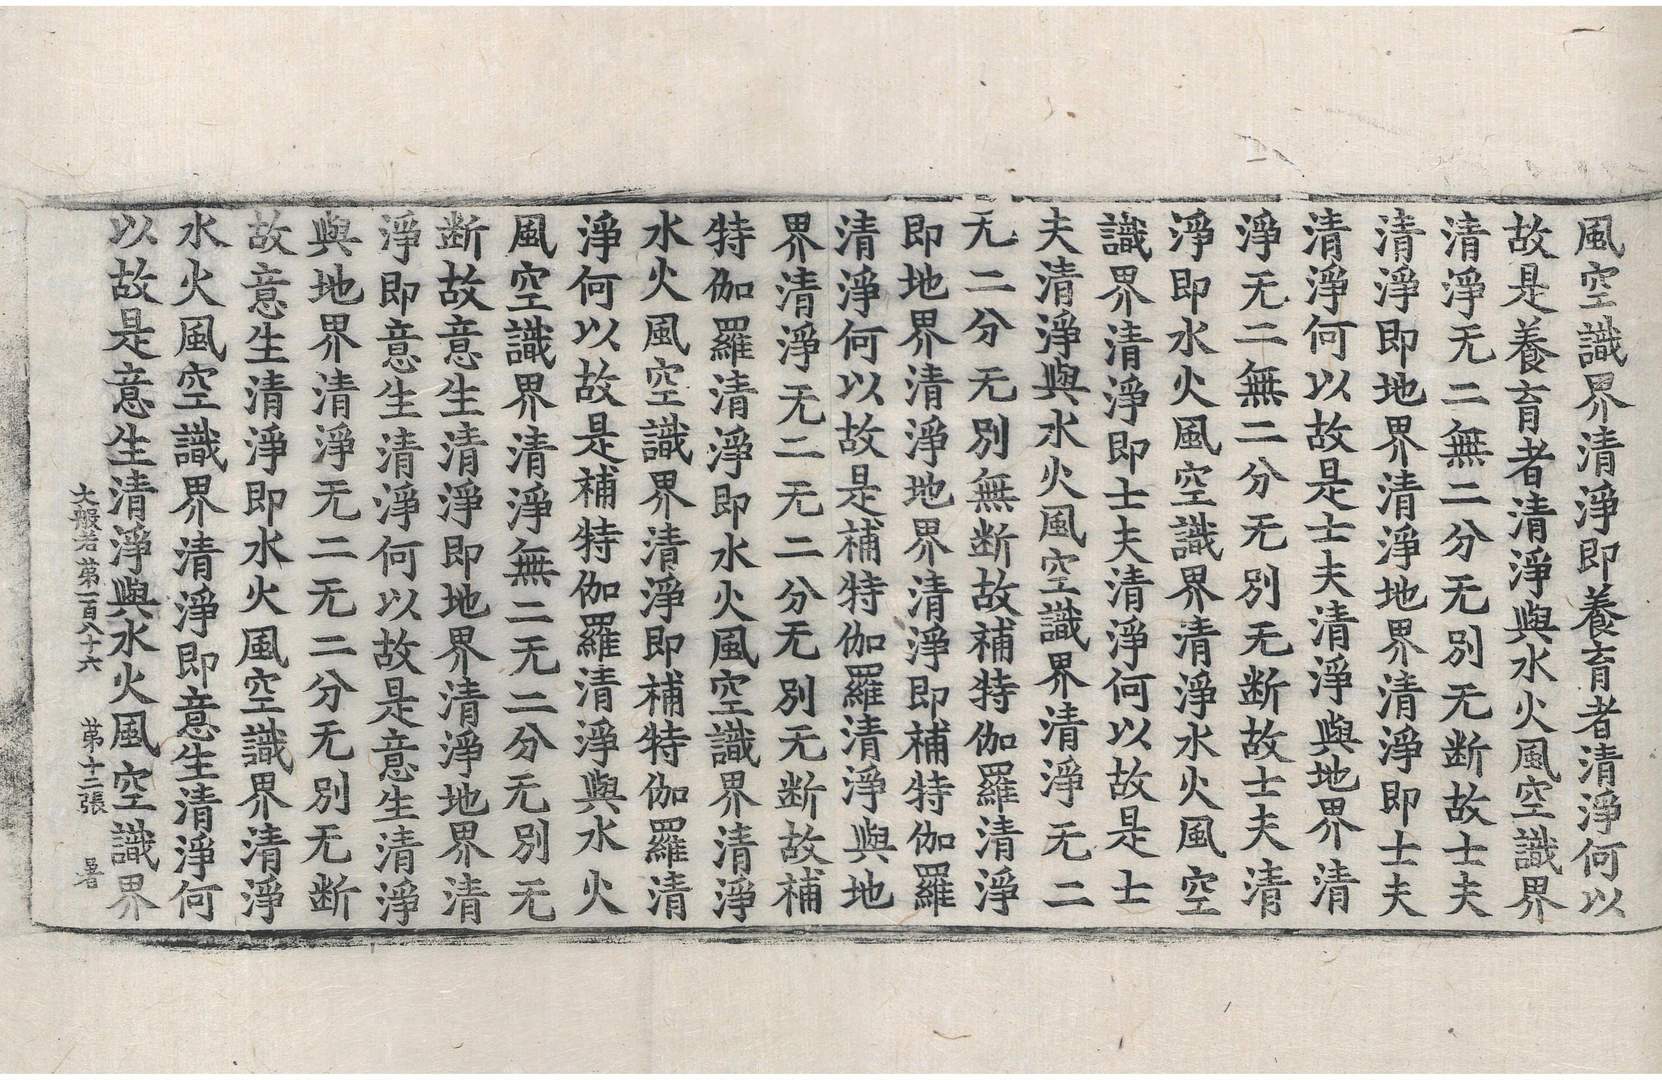 風空識界清淨即養育者清淨何以
故是養育者清淨與水火風空識界
清淨无二無二分无別无断故士夫
清淨即地界清淨地界清淨即士夫
清淨何以故是士夫清淨與地界清
淨无二無二分无別无断故士夫清
淨即水火風空識界清淨水火風空
識界清淨即士夫清淨何以故是士
夫清淨與水火風空識界清淨无二
无二分无別無断故補特伽羅清淨
即地界清淨地界清淨即補特伽羅
清淨何以故是補特伽羅清淨與地
界清淨无二无二分无別无断故補
特伽羅清淨即水火風空識界清淨
水火風空識界清淨即補特伽羅清
淨何以故是補特伽羅清淨與水火
風空識界清淨無二无二分无別无
断故意生清淨即地界清淨地界清
淨即意生清淨何以故是意生清淨
與地界清淨无二无二分无別无断
故意生清淨即水火風空識界清淨
水火風空識界清淨即意生清淨何
以故是意生清淨與水火風空識界
大般若第一百八十六 第十二張 暑